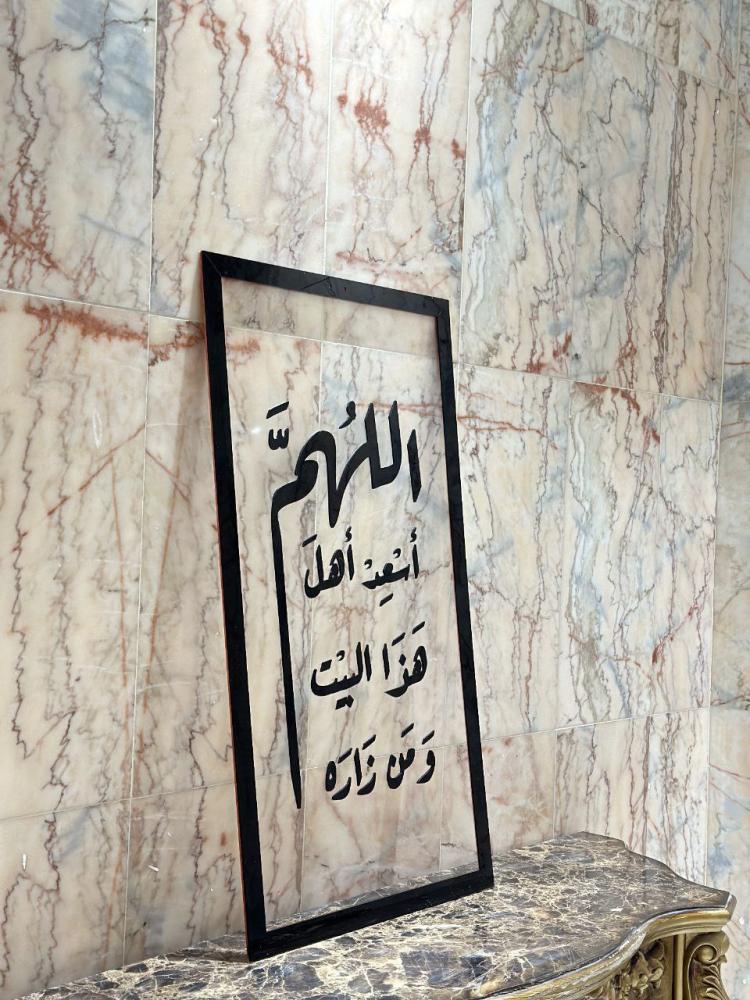 اللهُمَّ
أسْعِدْ أهلَ
هَذَا البيْت
وَمَن زَارَه